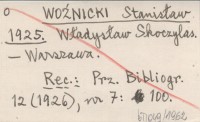 o WOŹNICKI Stanisław
1925. Władysław Skoczylas.
— Warszawa.
Rec.: Prz. Bibliogr.
12 (1926), nr 7: 100.